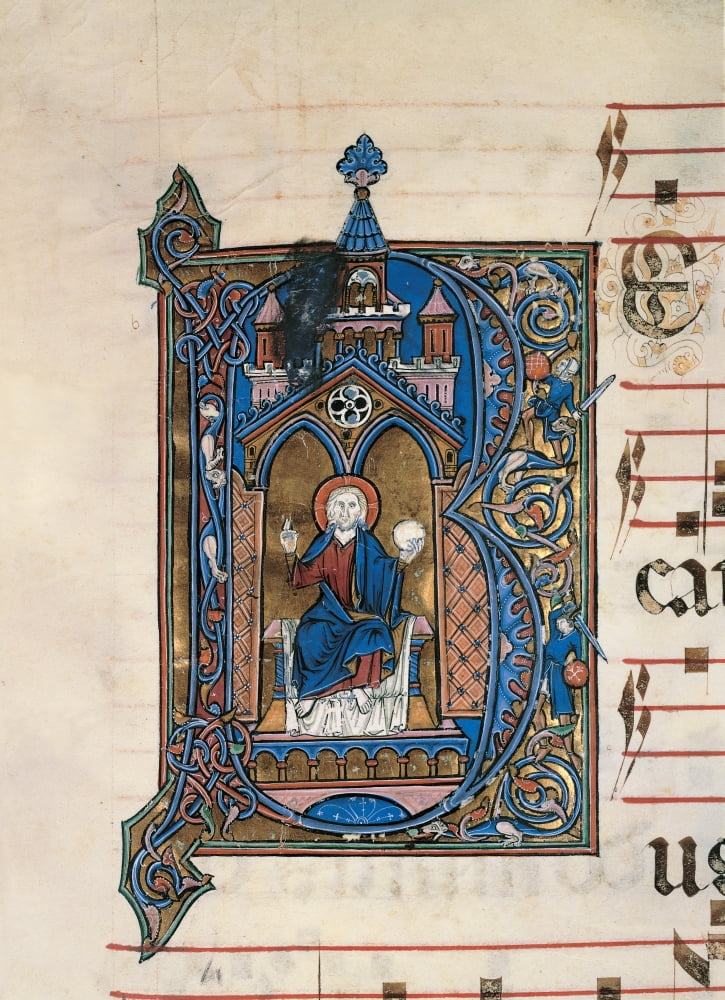 BE
ca
us